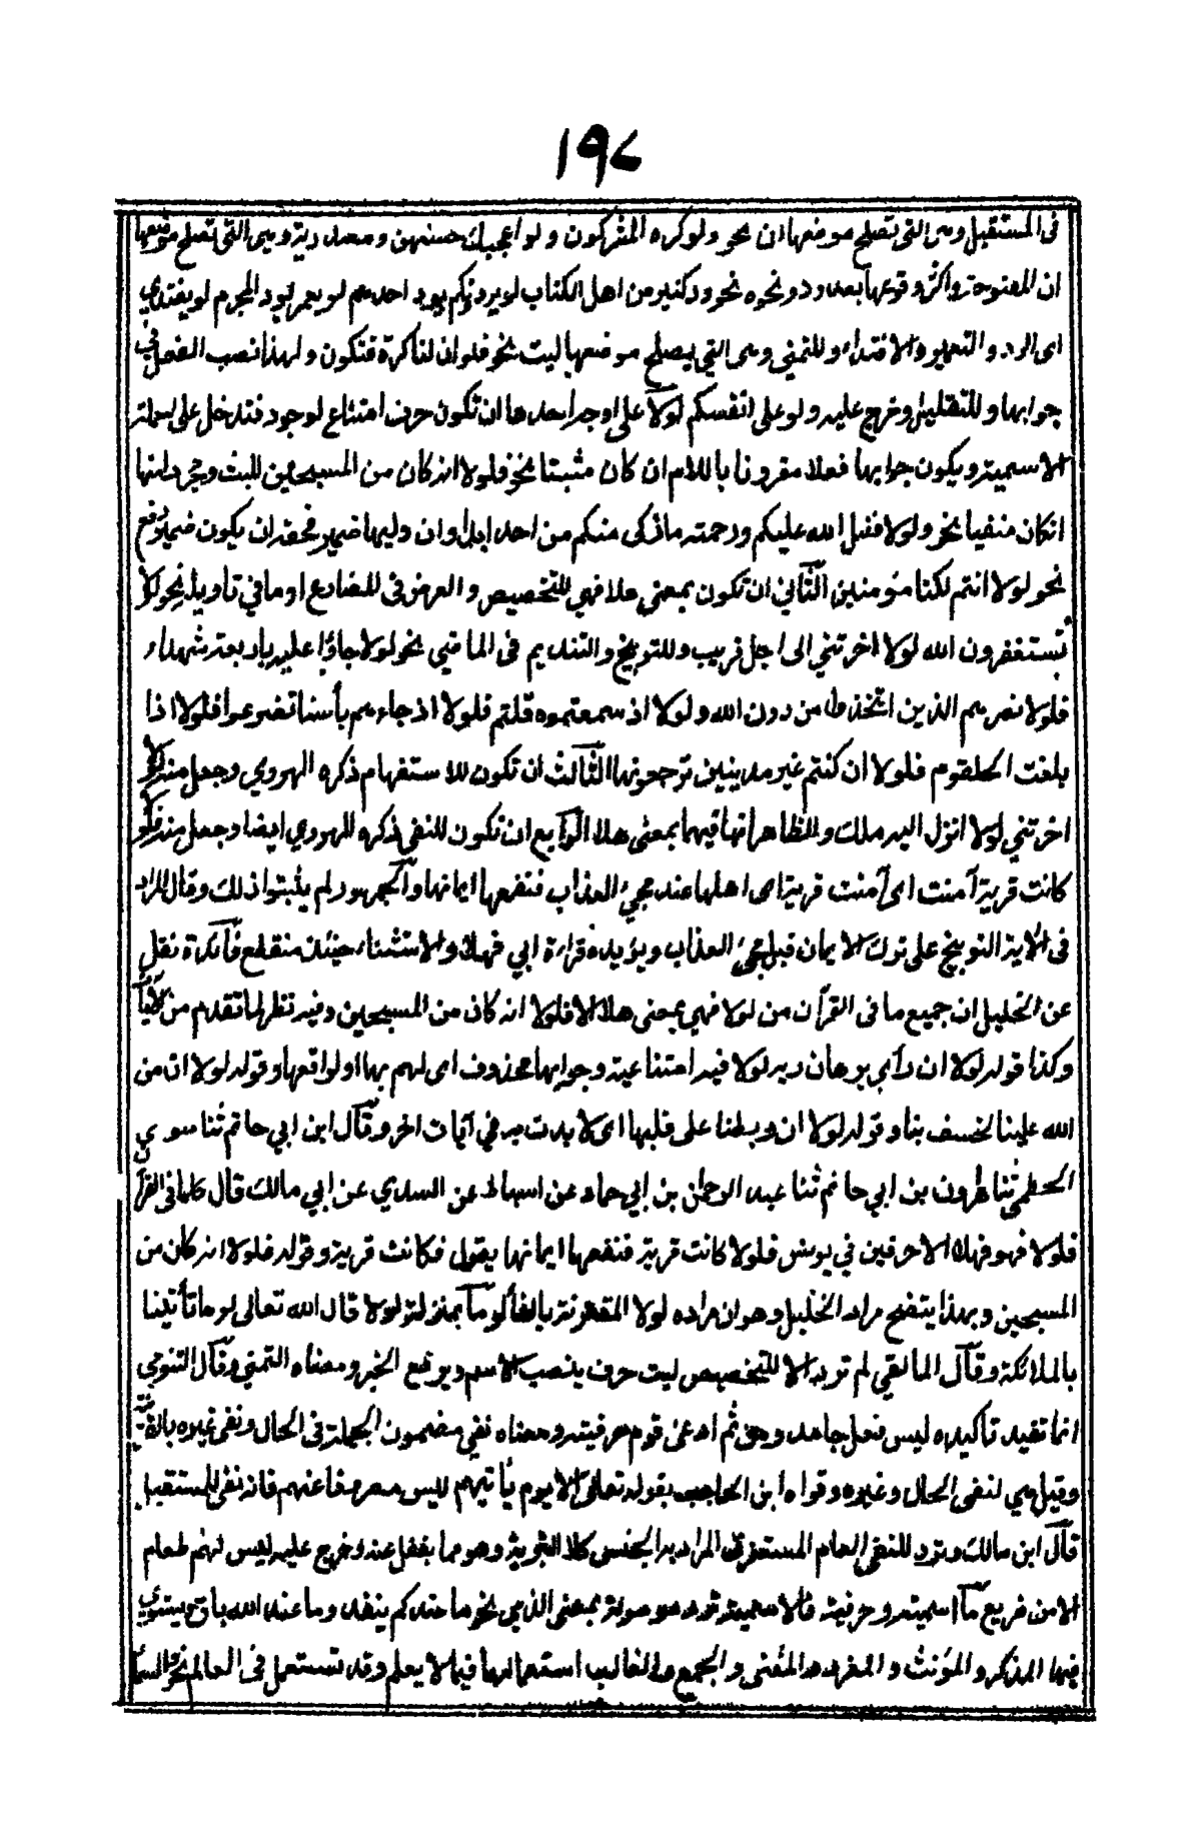 ١٩٨
فى المستقبل وهى التى تصلح موضعها ان نحو ولو كره المشركون ولو اعجبك حسنهن ومصدرية وهى التى تصلح موضعها
ان المفتوحة واكثر وقوعها بعد ود ونحوه نحو ود كثير من اهل الكتاب لو يردونكم يود احدهم لو يعمر يود المجرم لو يفتدي
اى الرد والتعمير والافتداء وللتمني وهى التي يصلح موضعها ليت نحو فلو ان لنا كرة فنكون ولهذا نصب الفعل في
جوابها وللتقليل وخرج عليه ولو على انفسكم لولا على اوجه احدها ان تكون حرف امتناع لوجود فتدخل على الجملة
الاسمية ويكون جوابها فعلا مقرونا باللام ان كان مثبتا نحو فلولا انه كان من المسبحين للبث ومجردا منها
ان كان منفيا نحو ولولا فضل الله عليكم ورحمته ما زكى منكم من احد ابدا وان وليها ضمير فحقه ان يكون ضمير رفع
نحو لولا انتم لكنا مؤمنين الثاني ان تكون بمعنى هلا فهي للتحضيض والعرض فى المضارع او ما في تاويله نحو لولا
تستغفرون الله لولا اخرتني الى اجل قريب وللتوبيخ والتنديم فى الماضي نحو لولا جاؤا عليه باربعة شهداء
فلولا نصرهم الذين اتخذوا من دون الله ولولا اذ سمعتموه قلتم فلولا اذ جاءهم بأسنا تضرعوا فلولا اذا
بلغت الحلقوم فلولا ان كنتم غير مدينين ترجعونها الثالث ان تكون للاستفهام ذكره الهروي وجعل منه لولا
اخرتني لولا انزل اليه ملك والظاهر انها فيهما بمعنى هلا الرابع ان تكون للنفى ذكره الهروي ايضا وجعل منه فلولا
كانت قرية آمنت اى آمنت قرية اى اهلها عند مجئ العذاب فنفعها ايمانها والجمهور لم يثبتوا ذلك وقال المراد
فى الاية التوبيخ على ترك الايمان قبل مجئ العذاب ويؤيده قراءة ابي فهلا والاستثناء حينئذ منقطع فائدة نقل
عن الخليل ان جميع ما فى القرآن من لولا فهي بمعنى هلا الا فلولا انه كان من المسبحين وفيه نظر لما تقدم من الآيات
وكذا قوله لولا ان رأى برهان ربه لولا فيه امتناعية وجوابها محذوف اى لهم بها او لواقعها وقوله لولا ان من
الله علينا لخسف بنا وقوله لولا ان ربطنا على قلبها اى لابدت به في آيات اخر وقال ابن ابي حاتم ثنا موسى
الخطمي ثنا هارون بن ابي حاتم ثنا عبد الرحمن بن ابي حماد عن اسباط عن السدي عن ابي مالك قال كلما فى القرآن
فلولا فهو فهلا الا حرفين في يونس فلولا كانت قرية فنفعها ايمانها يقول فكانت قرية وقوله فلولا انه كان من
المسبحين وبهذا يتضح مراد الخليل وهو ان مراده لولا المقترنة بالفاء لوما بمنزلة لولا قال الله تعالى لو ما تأتينا
بالملائكة وقال المالقي لم ترد الا للتحضيض ليت حرف ينصب الاسم ويرفع الخبر ومعناه التمني وقال التنوخي
انما تفيد تأكيده ليس فعل جامد ومن ثم ادعى قوم حرفيته ومعناه نفي مضمون الجملة فى الحال ونفى غيره بالقرينة
وقيل هي لنفى الحال وغيره وقواه ابن الحاجب بقوله تعالى الا يوم يأتيهم ليس مصروفا عنهم فانه نفى للمستقبل
قال ابن مالك وترد للنفى العام المستغرق المراد به الجنس كلا التبرئة وهو مما يغفل عنه وخرج عليه ليس لهم طعام
الا من ضريع ما اسمية وحرفية فالاسمية ترد موصولة بمعنى الذي نحو ما عندكم ينفد وما عند الله باق ويستوي
فيها المذكر والمؤنث والمفرد والمثنى والجمع والغالب استعمالها فيما لا يعلم وقد تستعمل فى العالم نحو والسماء